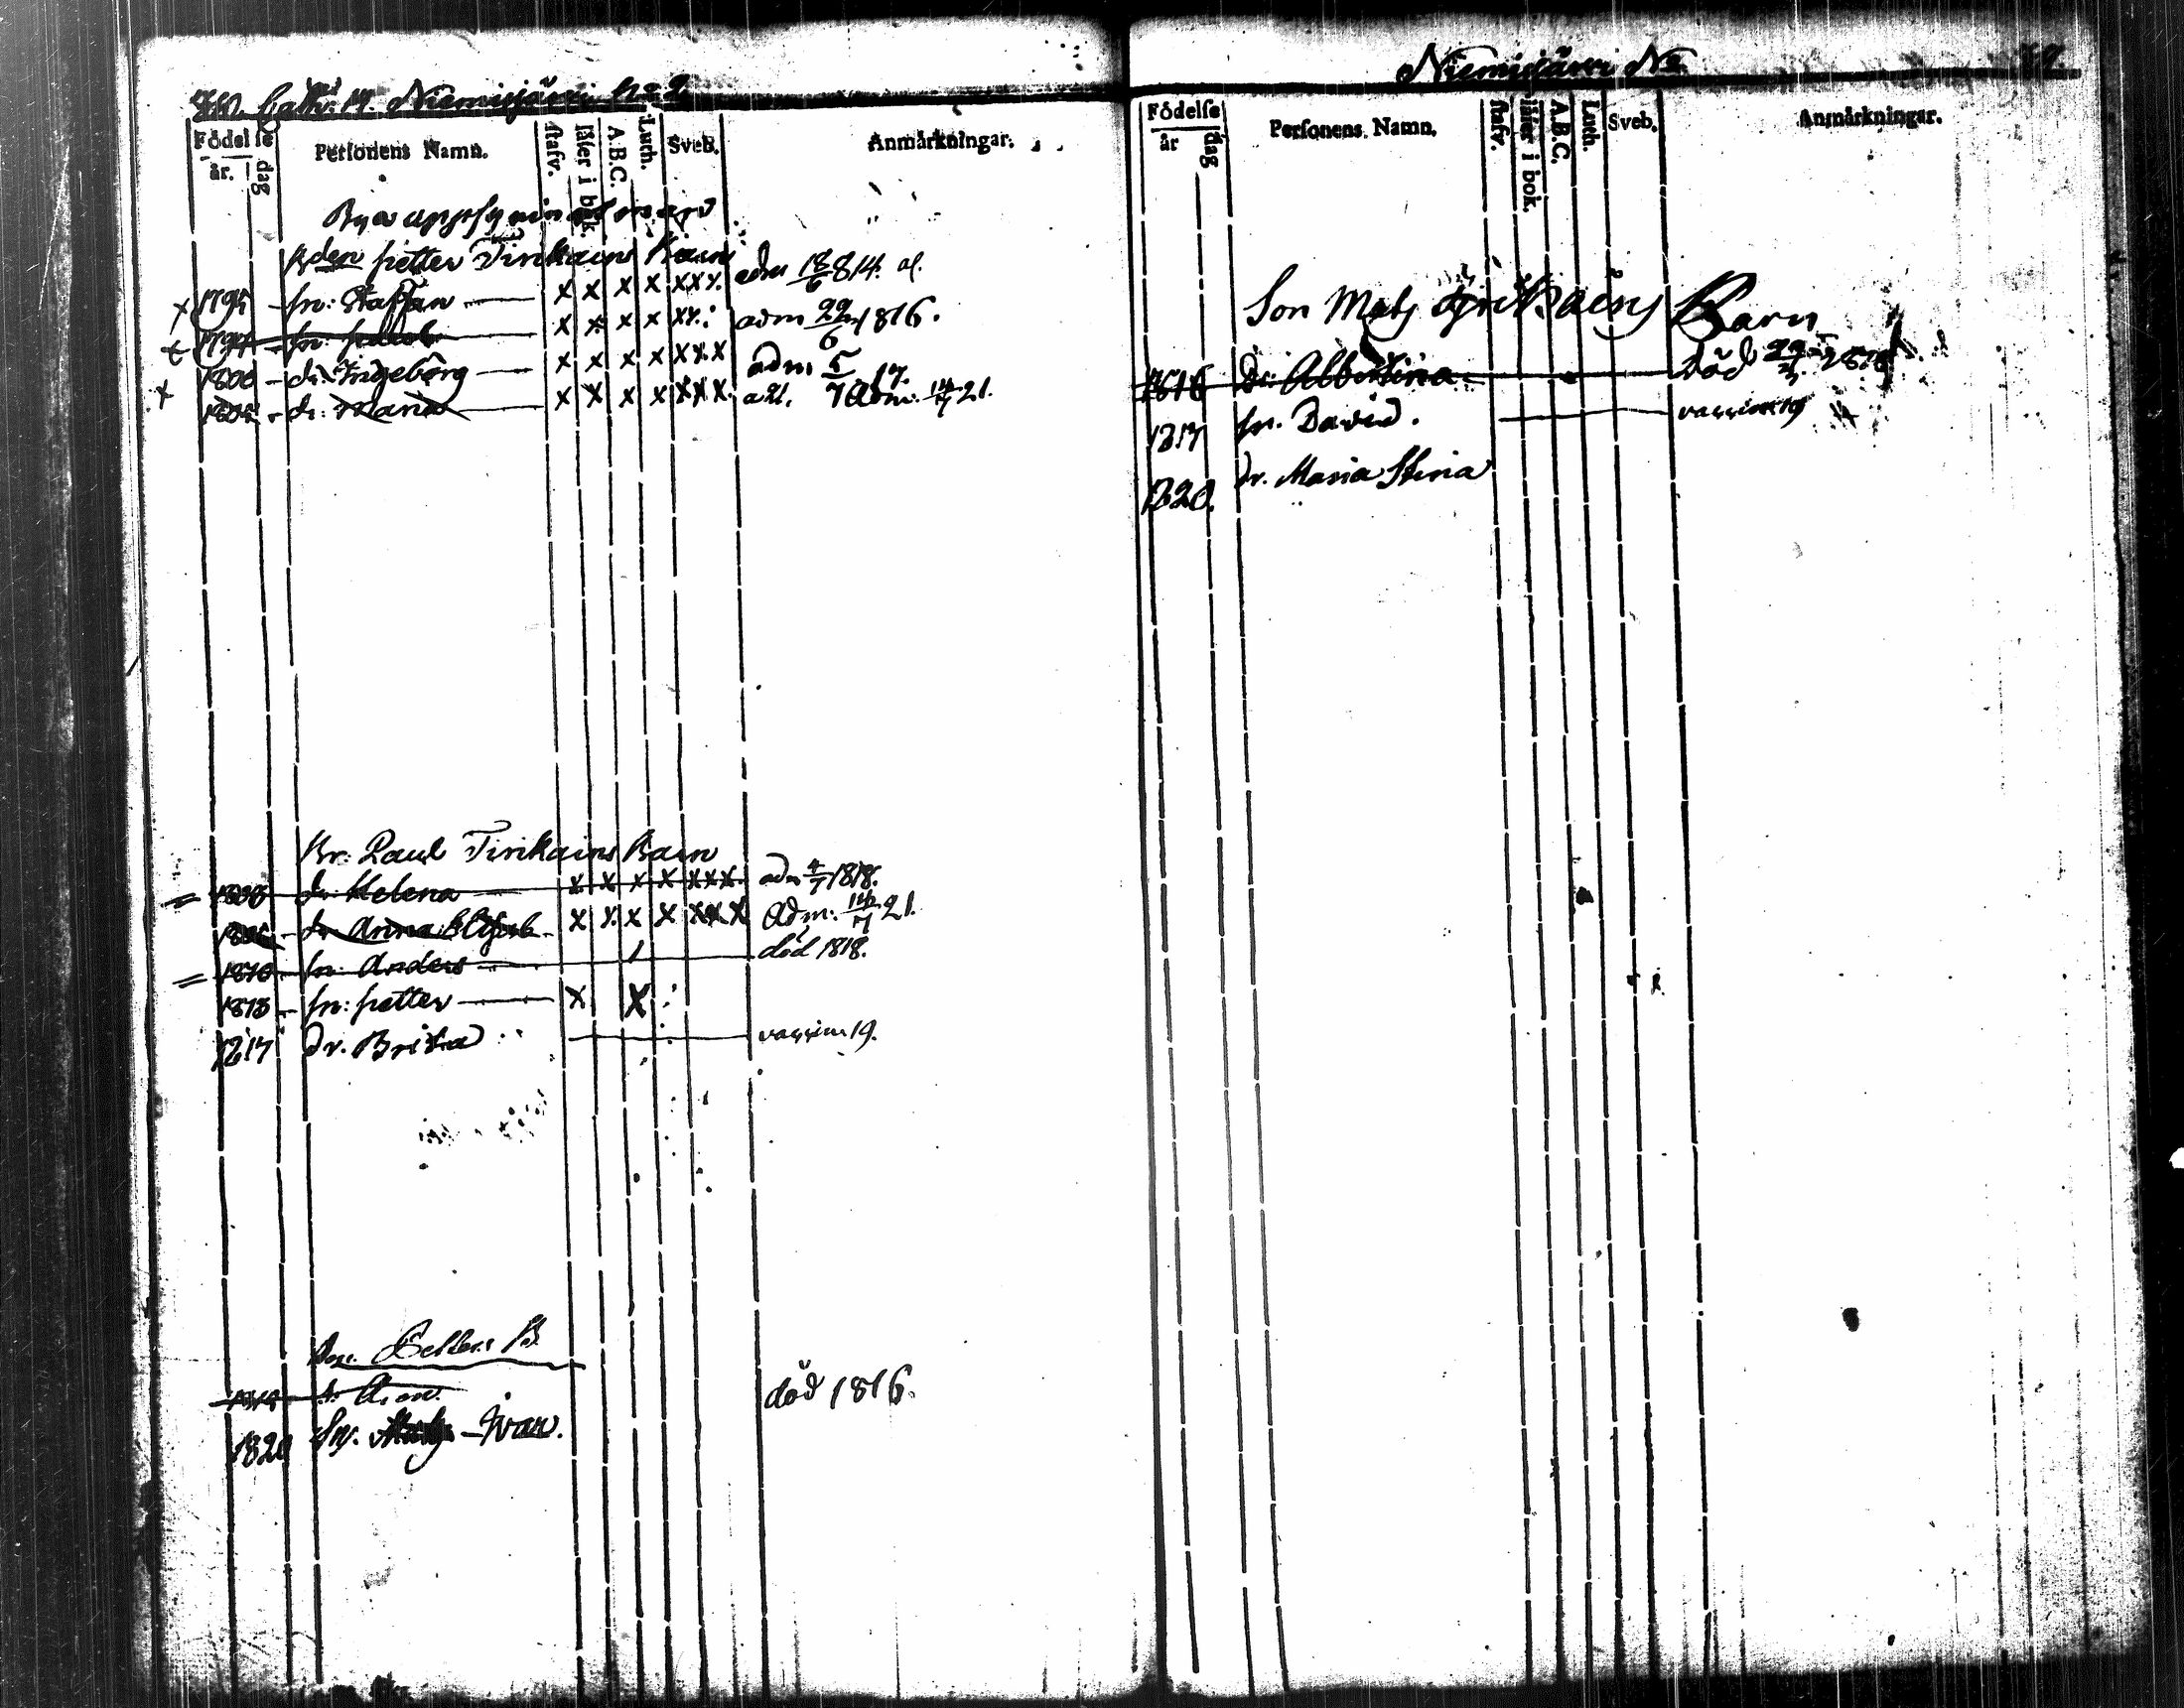 Niemisjärvi No 2.
Födelse
år. dag Personens Namn. stafv. läser i bok. A.B.C. Luth. Sveb. Anmärkningar.
Bden petter Tirikains Barn
1795 sn: Staffan x x x x xxx. adm 18/6 814.
sn: x x x x xx. adm 22/6 1816.
1800 dr: Ingeborg x x x x xxx adm 5/7 17.
dr: Maria x x x x xxx. a 21. Adm. 14/7 21.
Br: Paul Tirikains Barn
dr: Helena x x x x xxx. adm 4/7 1818.
dr Anna Elisab. x x x x xxx Adm: 14/7 21.
1810 sn: Anders 1 död 1818.
1813 sn: petter x x
1817 dr. Brita vaccin 19.
död 1816.
1820 Sn. Ivar.
Niemisjärvi No
Födelse
år dag Personens Namn. stafv. läser i bok. A.B.C. Luth. Sveb. Anmärkningar.
Son Mats Tirikains Barn
1816 Dr: Albertina död
1817 sn. David. vaccin 19
1820. dr. Maria Stina